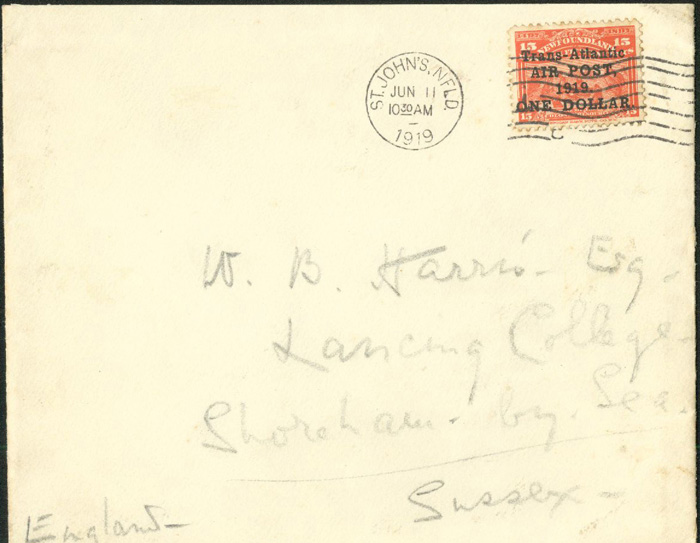 ST. JOHN'S, NFLD.
JUN 11
10 30 AM
1919
15 NEWFOUNDLAND 15
Trans-Atlantic
AIR POST,
1919.
ONE DOLLAR.
15 15
W. B. Harris - Esq -
Lancing College -
Shoreham - by - Sea.
Sussex -
England -